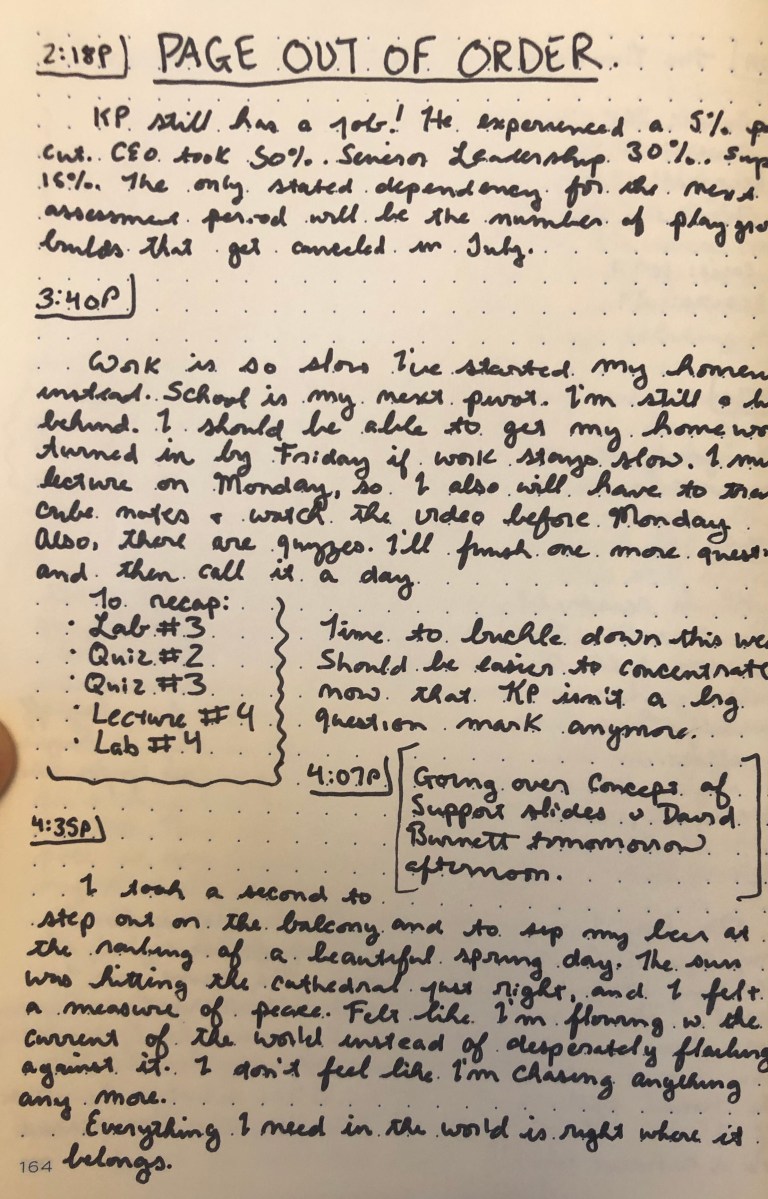 2:18P PAGE OUT OF ORDER.
KP still has a job! He experienced a 5% p
cut. CEO took 50%. Senior Leadership 30%. Sup
15%. The only stated dependency for the next
assessment period will be the number of playgro
builds that get canceled in July.
3:40P
Work is so slow I've started my homew
instead. School is my next pivot. I'm still a b
behind. I should be able to get my homewo
turned in by Friday if work stays slow. I mu
lecture on Monday, so I also will have to tran
cube notes & watch the video before Monday.
Also, there are quizzes. I'll finish one more questi
and then call it a day.
To recap:
• Lab #3
• Quiz #2
• Quiz #3
• Lecture #4
• Lab #4
Time to buckle down this wee
Should be easier to concentrate
now that KP isn't a big
question mark anymore.
4:07P
Going over Concept of
Support slides w David
Burnett tomomorrow
afternoon.
4:35P
I took a second to
step out on the balcony and to sip my beer at
the of a beautiful spring day. The sun
was hitting the cathedral just right, and I felt
a measure of peace. Felt like I'm flowing w the
current of the world instead of desperately
against it. I don't feel like I'm chasing anything
any more.
Everything I need in the world is right where it
belongs.
164